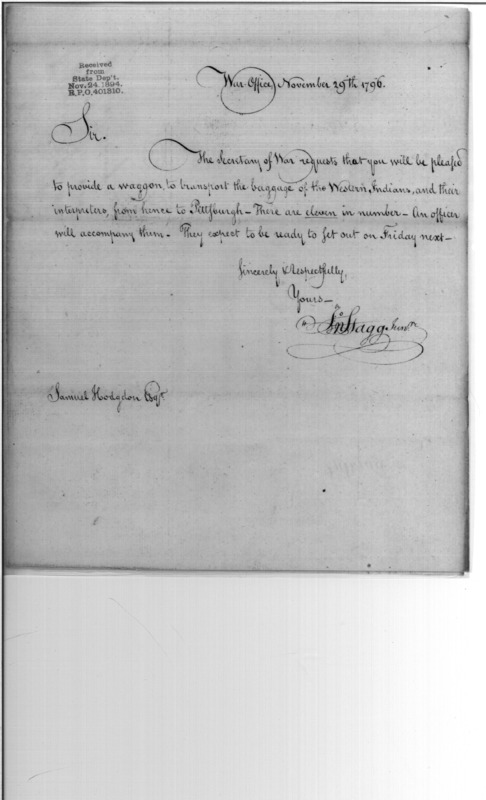 Received
from
State Dep't.
Nov. 24. 1894.
R.P.O. 401310.
War-Office November 29th 1796.
Sir.
The Secretary of War requests that you will be pleased
to provide a waggon, to transport the baggage of the Western Indians, and their
interpreters, from hence to Pittsburgh - There are eleven in number - An officer
will accompany them - They expect to be ready to set out on Friday next -
Sincerely & Respectfully,
Yours -
Jno Stagg Junr
Samuel Hodgdon Esqr